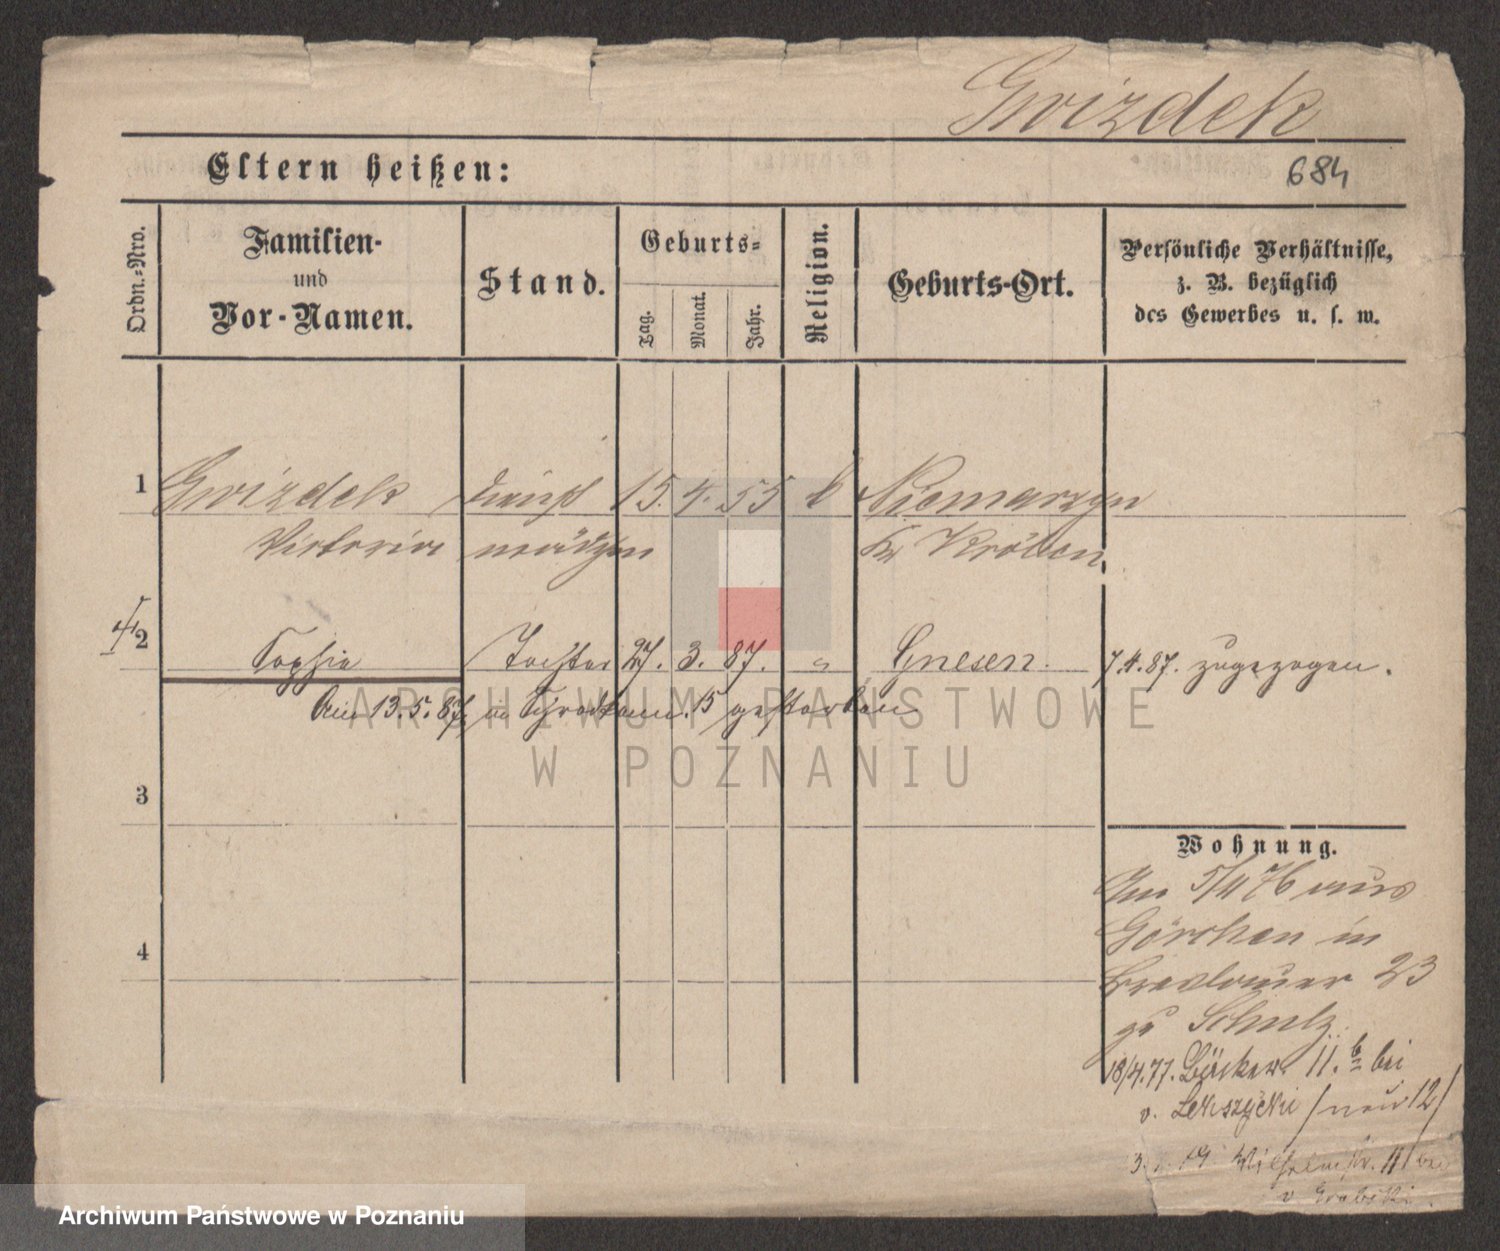 Gwizdek
Eltern heißen:
684
Ordn.-Nro.
Familien-
und
Vor-Namen.
Stand.
Geburts-
Tag.
Monat.
Jahr.
Religion.
Geburts-Ort.
Persönliche Verhältnisse,
z. B. bezüglich
des Gewerbes u. s. w.
1 Gwizdek 15. 4. 55 k Niemarzyn
Victoria mädchen Kr Kröben
2 Sophia Tochter 27. 3. 87. " Gnesen. 7.4.87. zugezogen.
Am 13.5.87. in 15 gestorben
3
4
Wohnung.
Am 5/11 76 aus
Görchen in
Breslauer 23
zu Schulz
18/4.77. Bäcker 11.b bei
v. /neu 12/
3. 79 Wilhelmstr. 11 bei
v. Grabski.
ARCHIWUM PAŃSTWOWE
W POZNANIU
Archiwum Państwowe w Poznaniu